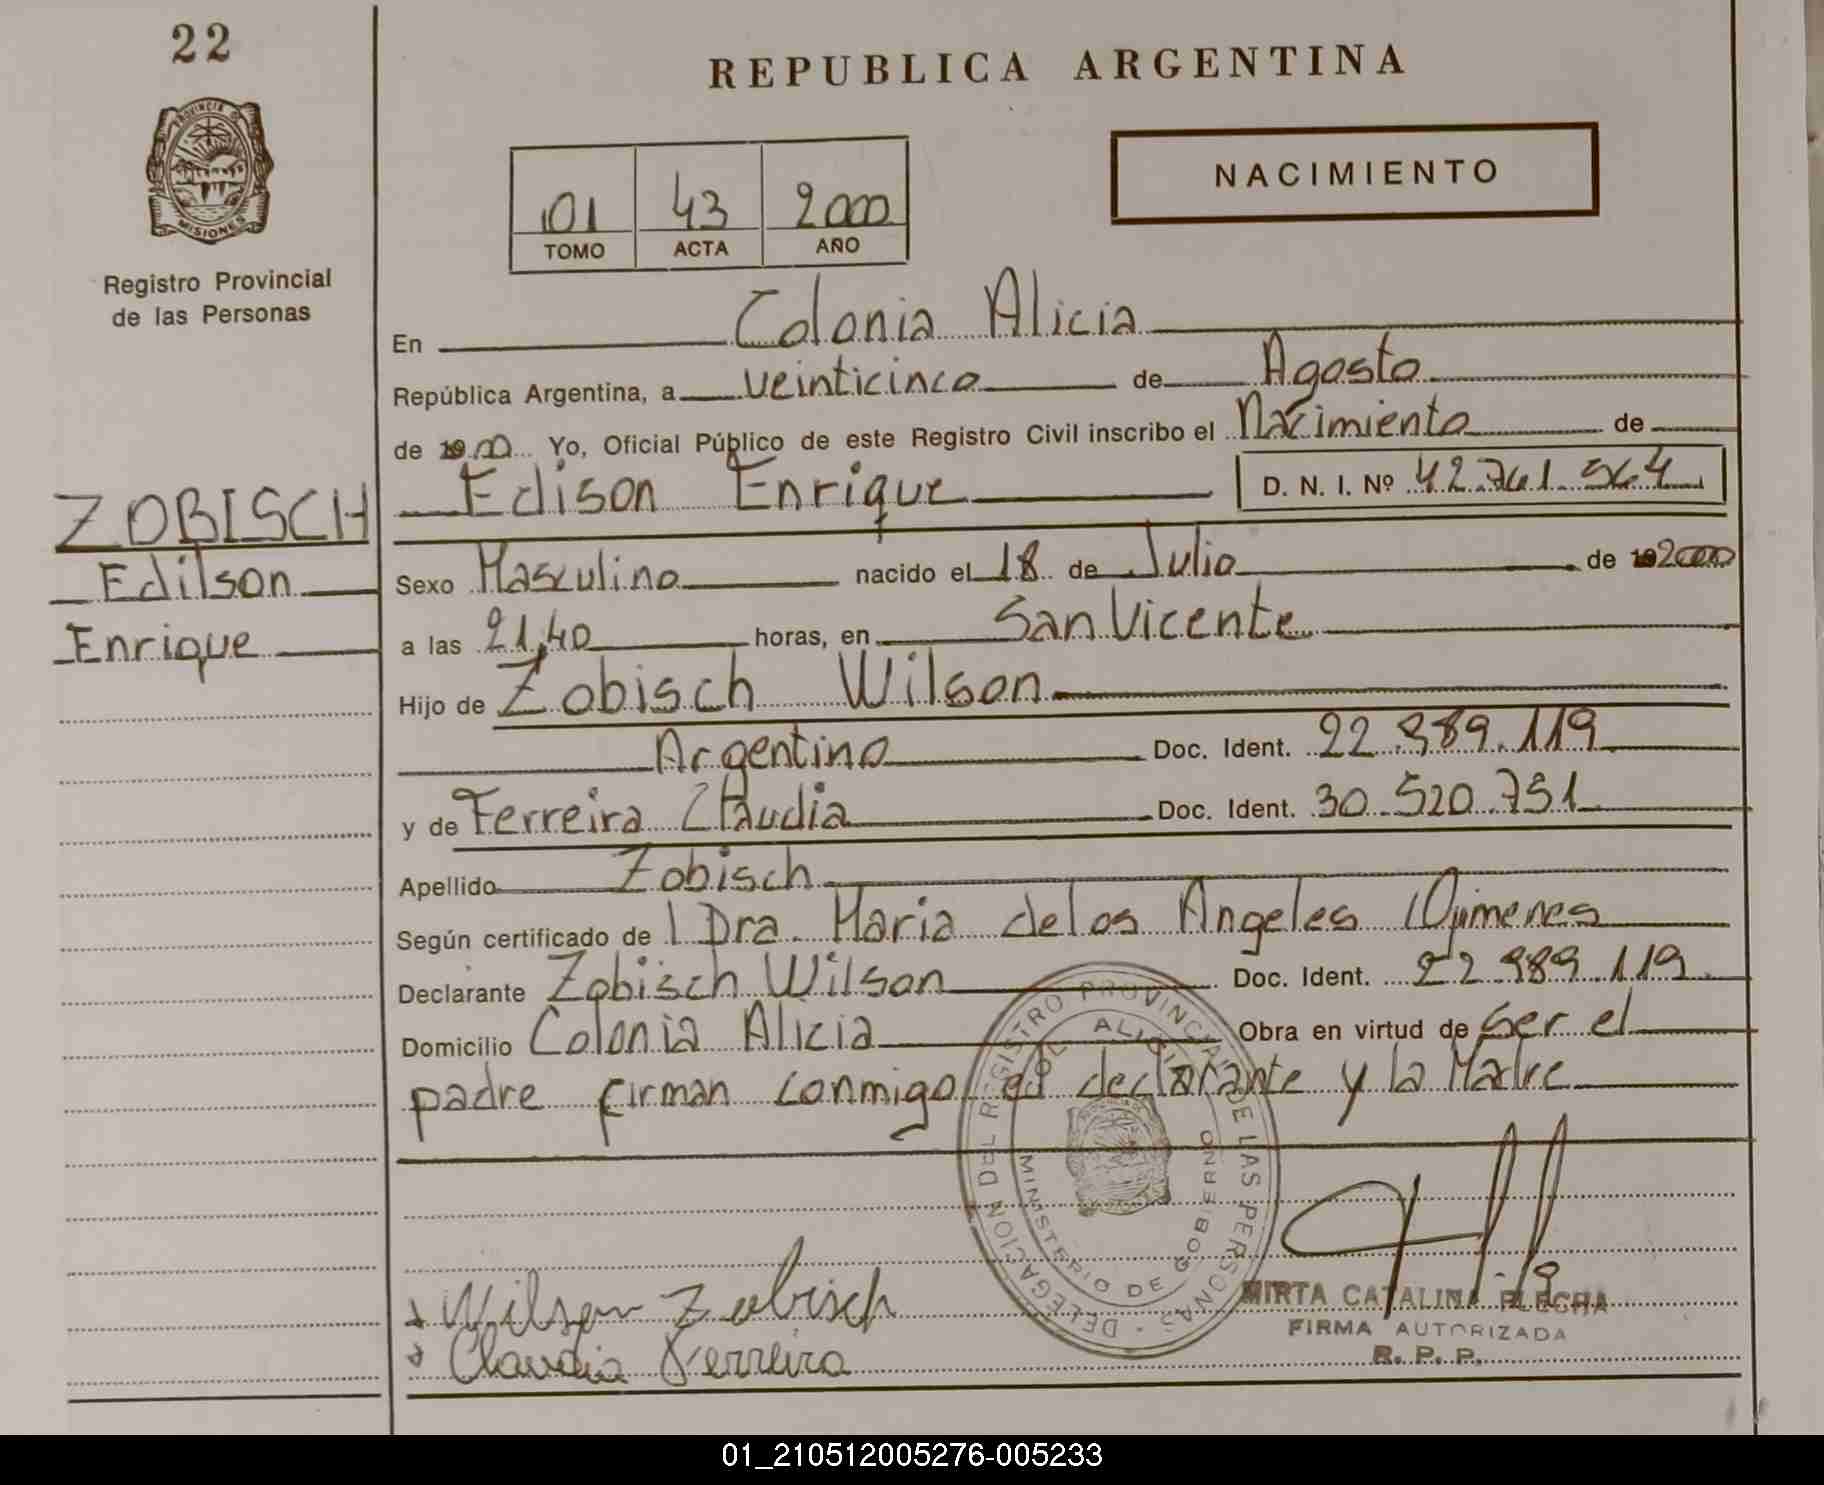 22
PROVINCIA DE
MISIONES
Registro Provincial
de las Personas
REPUBLICA ARGENTINA
01 43 2000
TOMO ACTA AÑO
NACIMIENTO
En Colonia Alicia
República Argentina, a veinticinco de Agosto
de 00 Yo, Oficial Público de este Registro Civil inscribo el Nacimiento de
Edison Enrique D. N. I. Nº 42.761.564
ZOBISCH
Edilson
Enrique
Sexo Masculino nacido el 18 de Julio de 2000
a las 21,40 horas, en San Vicente
Hijo de Zobisch Wilson
Argentino Doc. Ident. 22.989.119
y de Ferreira Claudia Doc. Ident. 30.520.751
Apellido Zobisch
Según certificado de Dra. Maria de los Angeles
Declarante Zobisch Wilson Doc. Ident. 22.989.119
Domicilio Colonia Alicia Obra en virtud de Ser el
padre firman conmigo el declarante y la Madre
DELEGACION DEL REGISTRO PROVINCIAL DE LAS PERSONAS
COL. ALICIA
MINISTERIO DE GOBIERNO
Wilson Zobisch
Claudia Ferreira
MIRTA CATALINA
FIRMA AUTORIZADA
R. P. P.
01_210512005276-005233